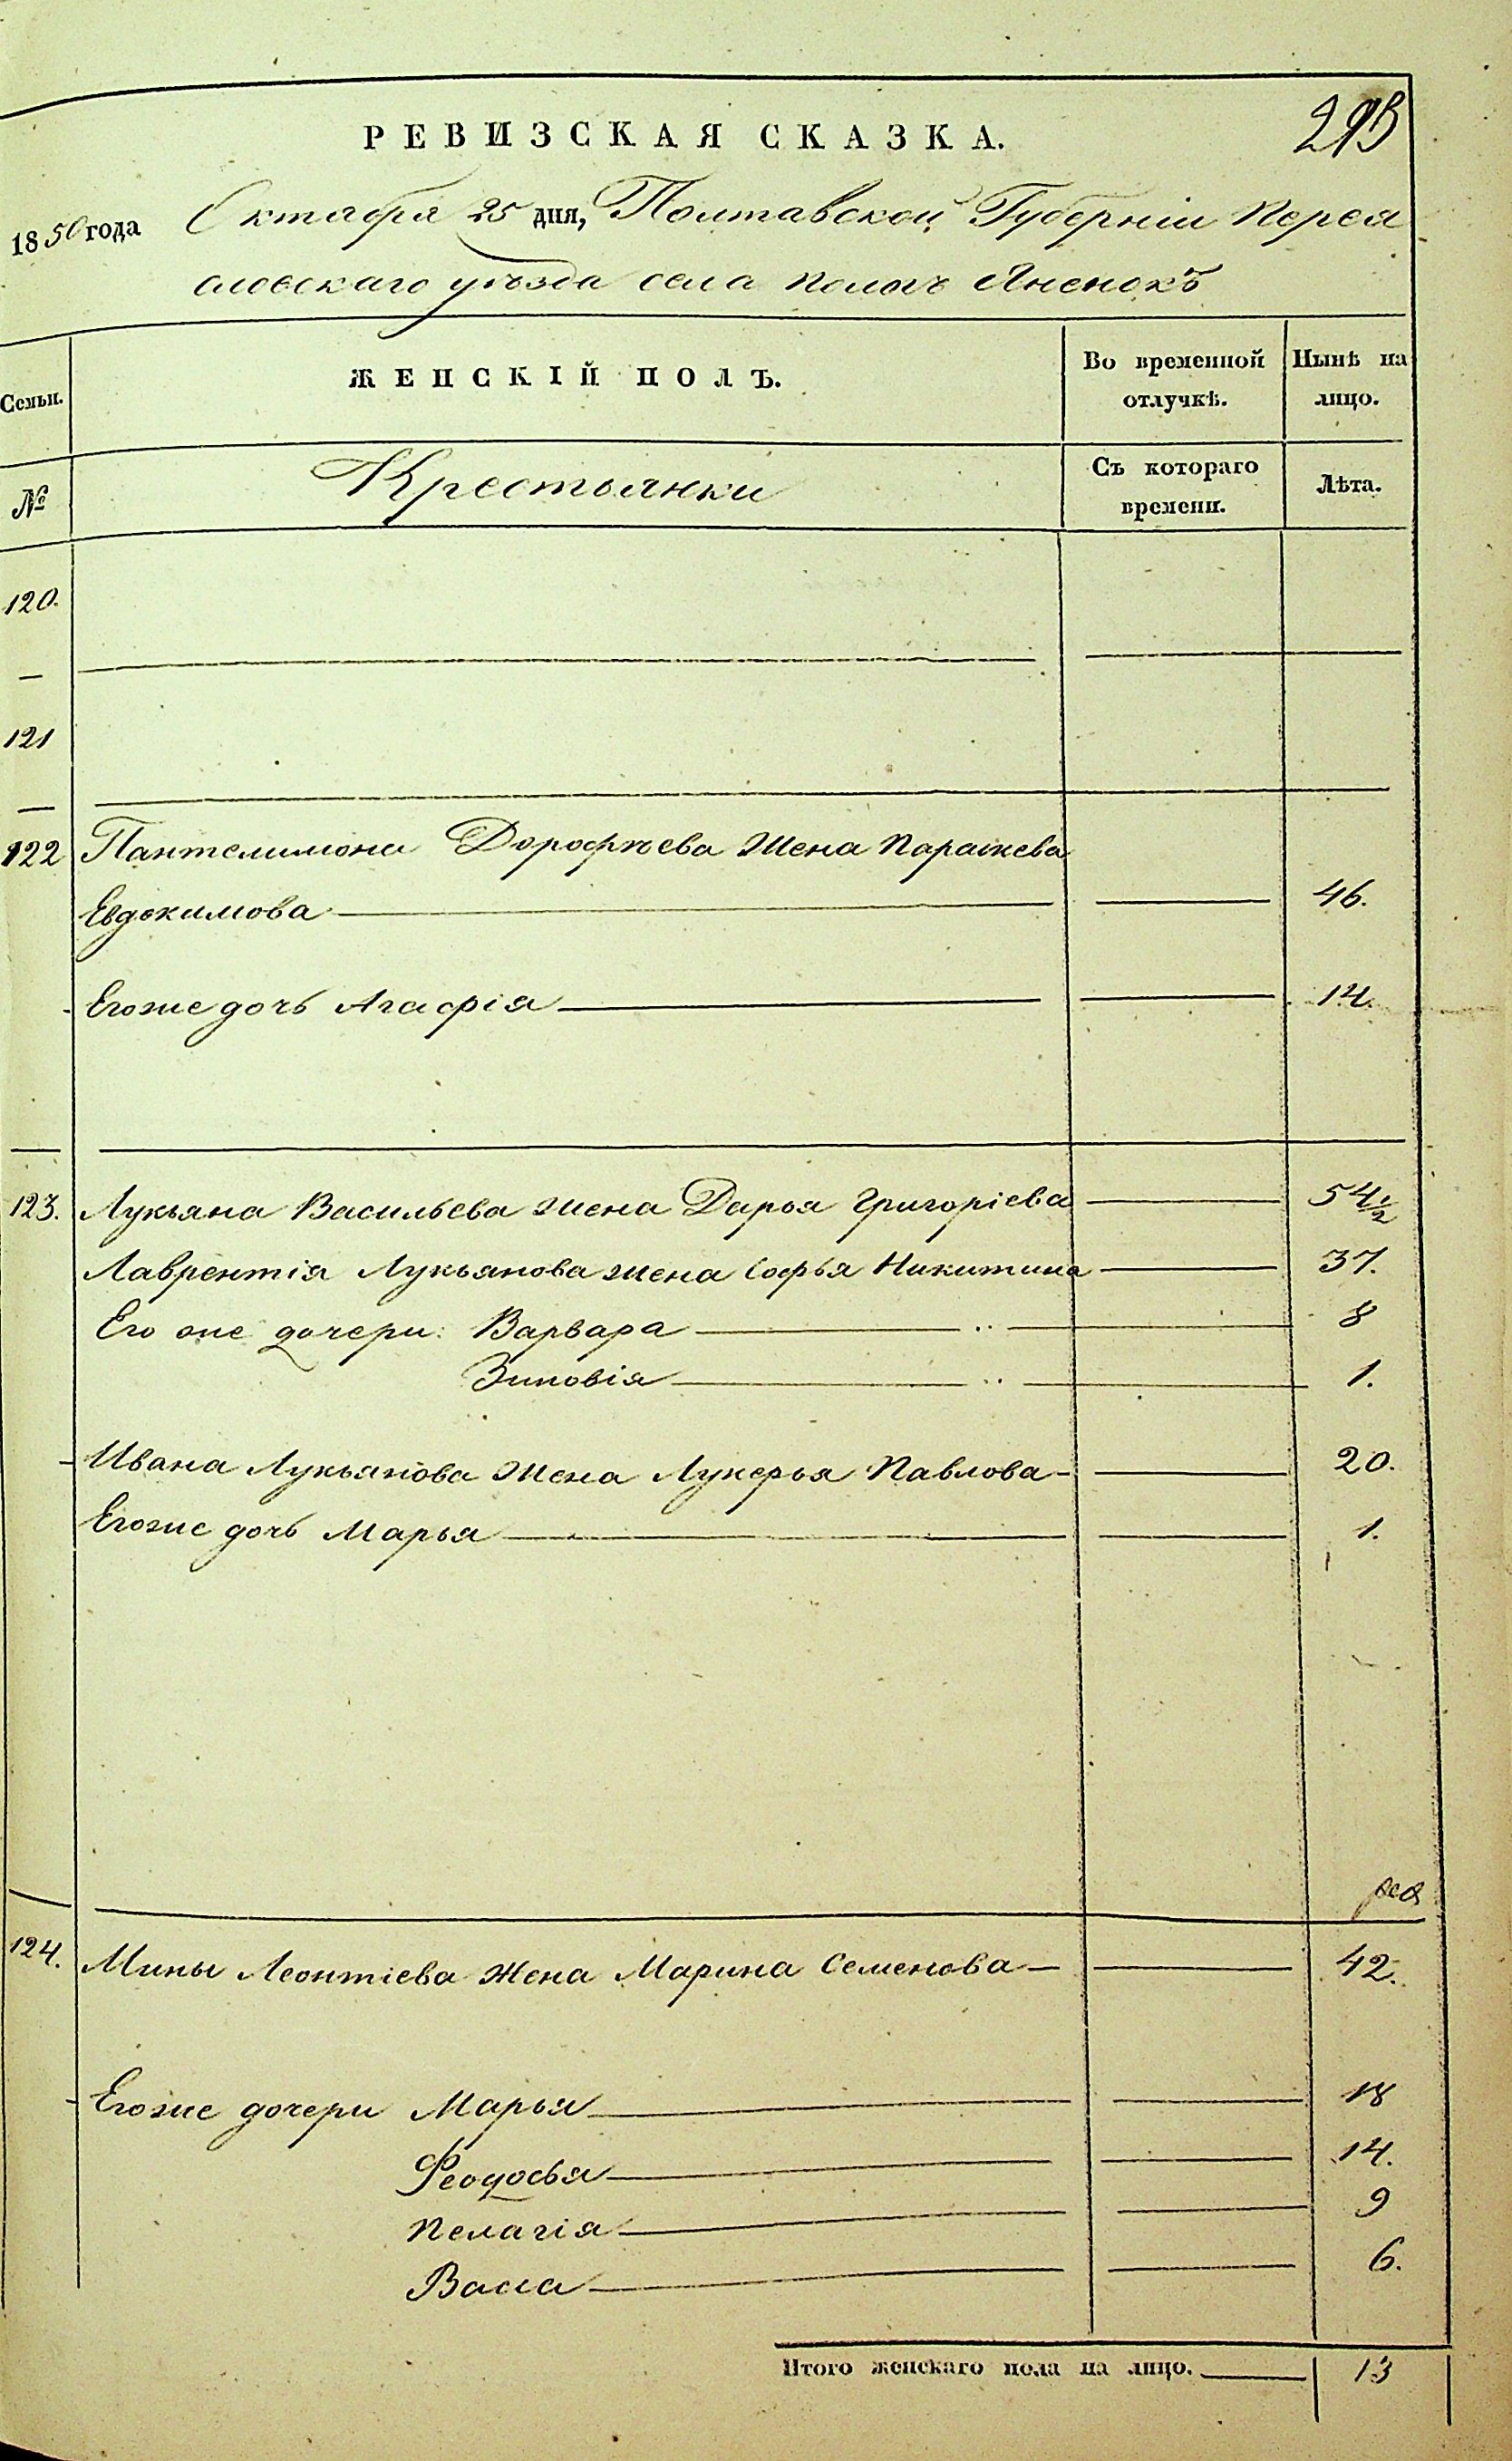 РЕВИЗСКАЯ СКАЗКА.
293
1850 года Октября 25 дня, Полтавской Губерніи Перея
словскаго уѣзда села Яненокъ
Семьи.
ЖЕНСКІЙ ПОЛЪ.
Во временной отлучкѣ.
Нынѣ на лицо.
№
Крестьянки
Съ котораго времени.
Лѣта.
120.
121
122 Пантелимона Дорофѣева жена Параскева
Евдокимова 46.
Егоже дочь Агафія 14.
123. Лукьяна Васильева жена Дарья Григоріева 54 1/2
Лаврентія Лукьянова жена Софья Никитина 37.
Его же дочери: Варвара 8
Зиновія 1.
Ивана Лукьянова жена Лукерья Павлова 20.
Егоже дочь Марья 1.
124. Мины Леонтіева жена Марина Семенова 42.
Егоже дочери Марья 18
Феодосья 14.
Пелагія 9
Васса 6.
Итого женскаго пола на лицо. 13